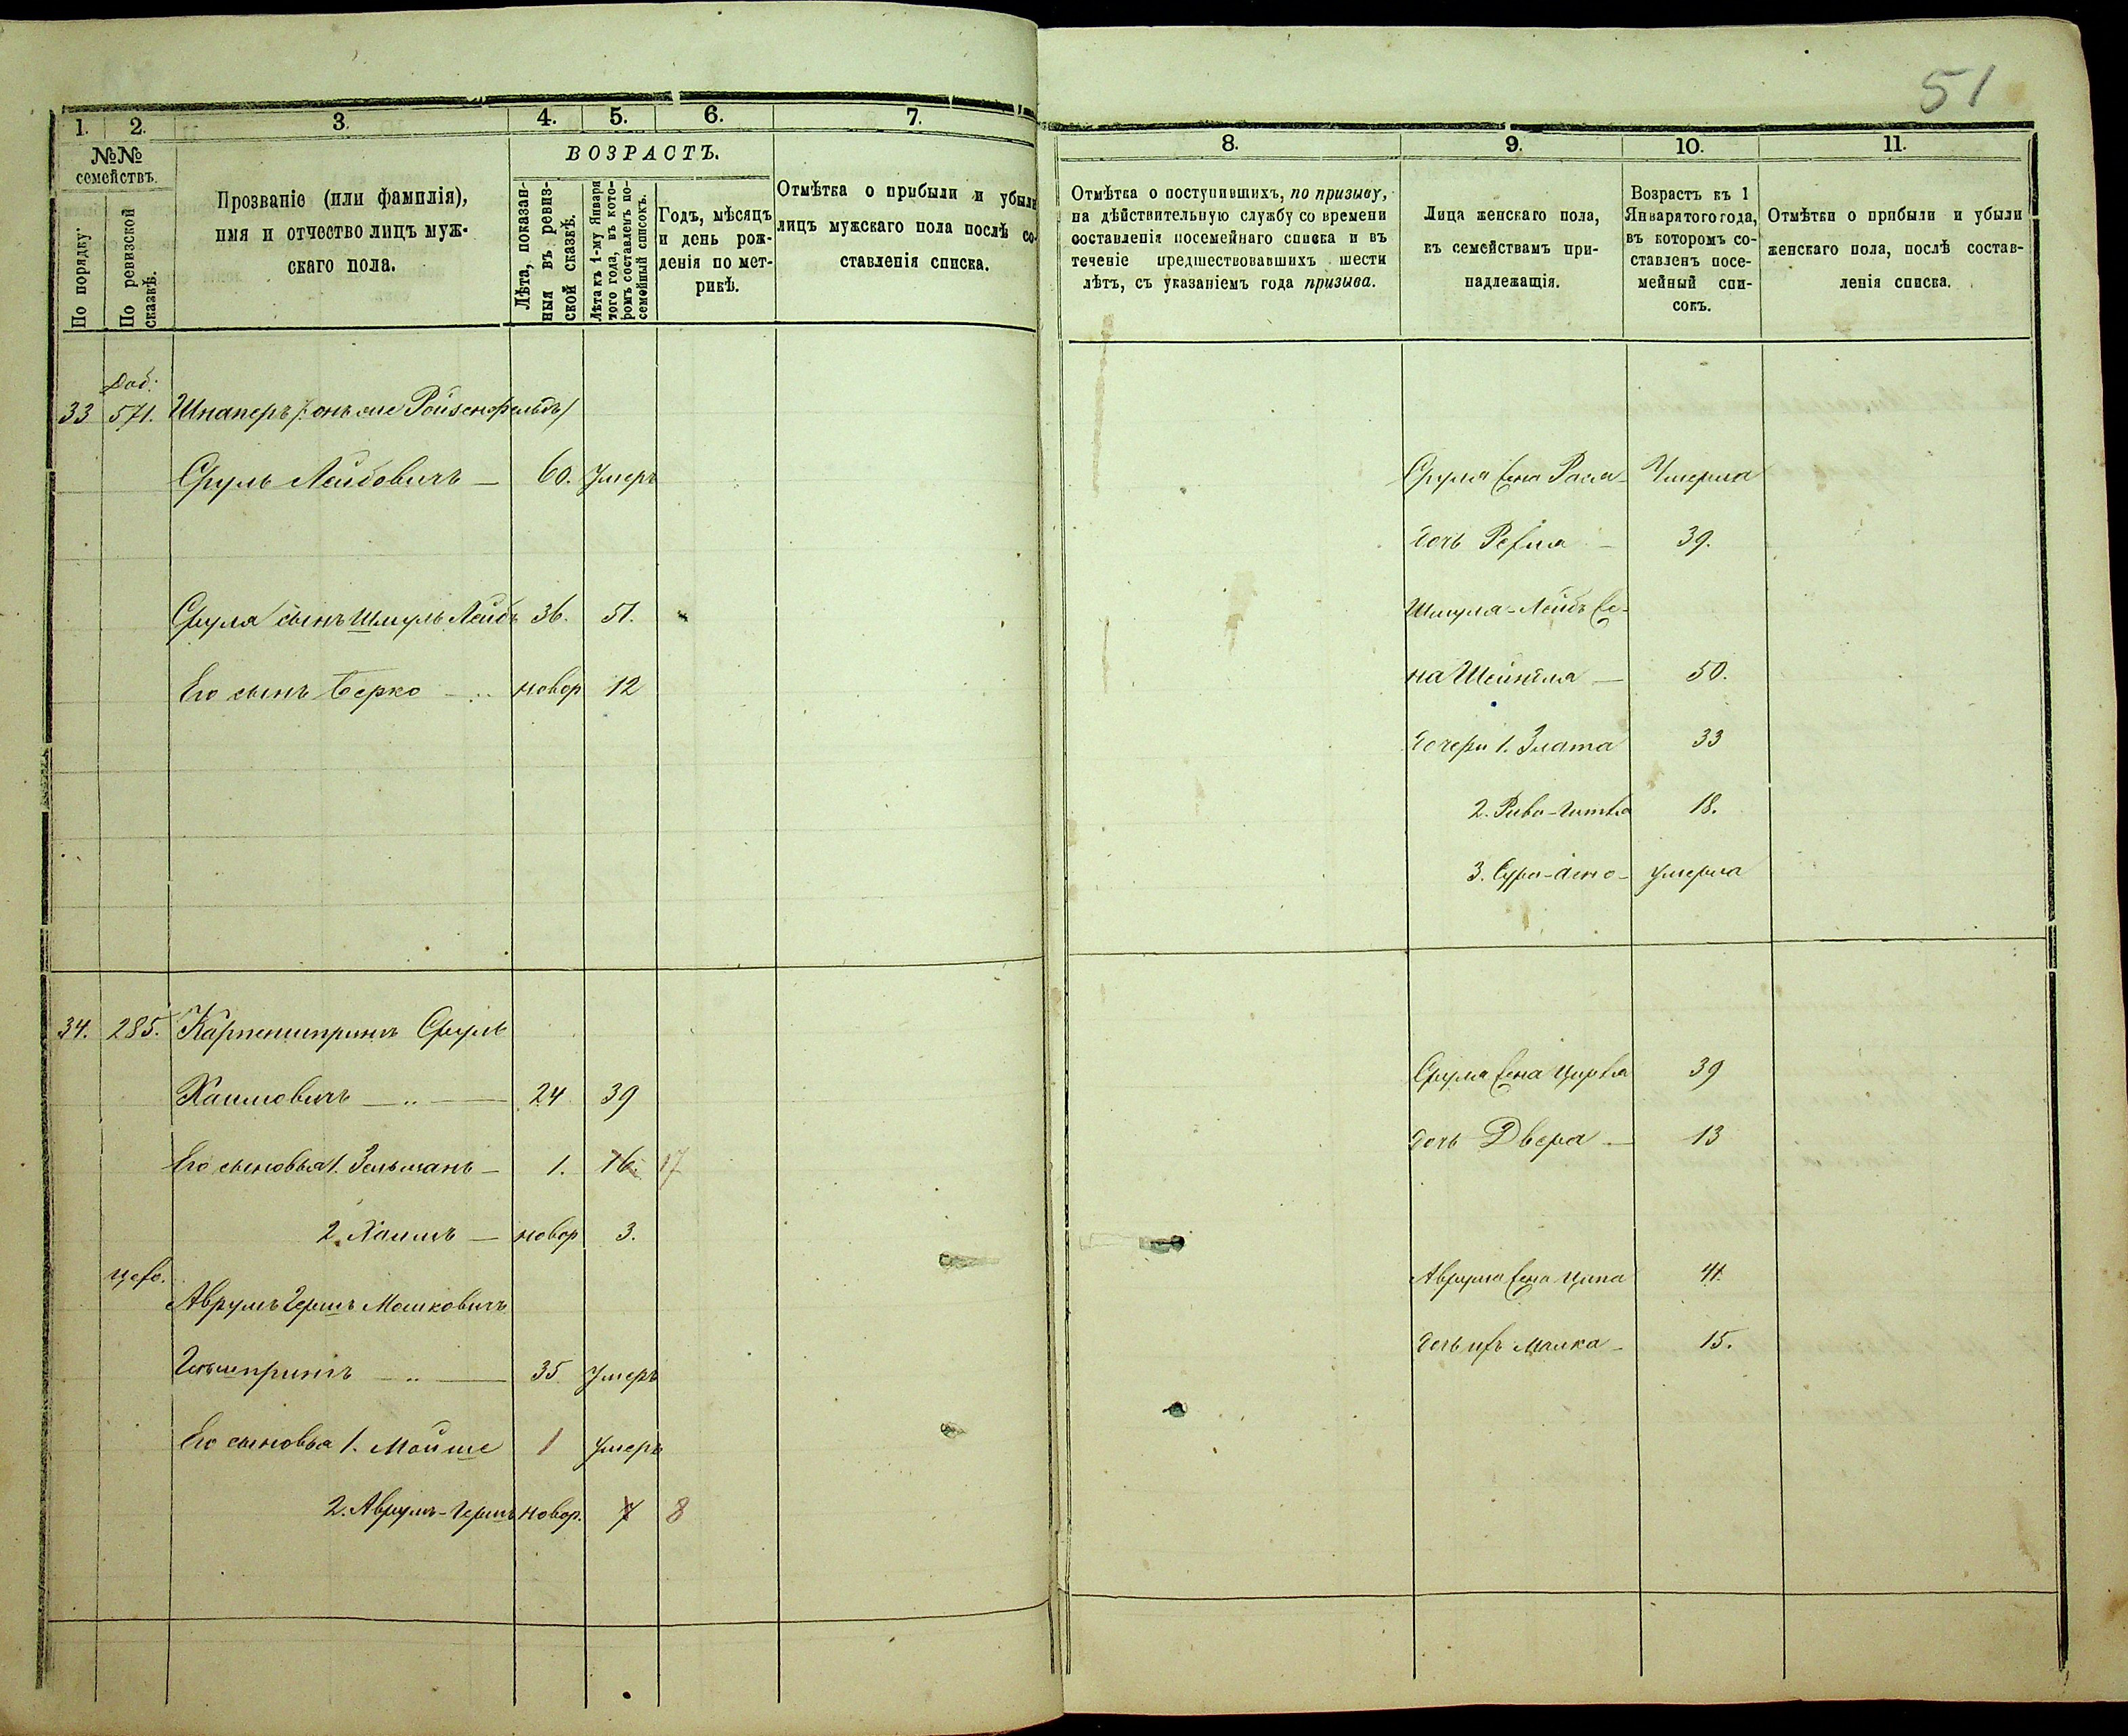 51
1. 2. 3. 4. 5. 6. 7.
№№ семействъ.
По порядку
По ревизской сказкѣ.
Прозваніе (или фамилія),
имя и отчество лицъ муж-
скаго пола.
ВОЗРАСТЪ.
Лѣта, показан-
ныя въ ревиз-
ской сказкѣ.
Лѣта къ 1-му Января
того года, въ кото-
ромъ составленъ по-
семейный списокъ.
Годъ, мѣсяцъ
и день рож-
денія по мет-
рикѣ.
Отмѣтка о прибыли и убыли
лицъ мужскаго пола послѣ со-
ставленія списка.
Доб:
33 571. Шнаперъ /: онъ же Ройзенфельдъ /
Сруль Лейбовичъ — 60. Умеръ
Срула сынъ Шмуль Лейбъ 36. 51.
Его сынъ Берко — новор 12
34. 285. Карпеншпрингъ Сруль
Хаимовичъ — 24 39
Его сыновья 1. Зельманъ — 1. 16. 17
2. Хаимъ — новор 3.
Аврумъ Гершъ Мошковичъ
35 Умеръ
Его сыновья 1. Мойше 1 Умеръ
2. Аврумъ-Гершъ новор. 7 8
8. 9. 10. 11.
Отмѣтка о поступившихъ, по призыву,
на дѣйствительную службу со времени
составленія посемейнаго списка и въ
теченіе предшествовавшихъ шести
лѣтъ, съ указаніемъ года призыва.
Лица женскаго пола,
къ семействамъ при-
надлежащія.
Возрастъ къ 1
Января того года,
въ которомъ со-
ставленъ посе-
мейный спи-
сокъ.
Отмѣтки о прибыли и убыли
женскаго пола, послѣ состав-
ленія списка.
Срула жена Рася — Умерла
дочь Рейзя — 39.
Шмуля-Лейбъ же-
на Шейндля — 50.
дочери 1. Злата 33
2. Рива-Гитля 18.
3. Сура- умерла
Срула жена Цирля 39
дочь Двера — 13
Аврума жена Ципа 41.
дочь ихъ Малка — 15.